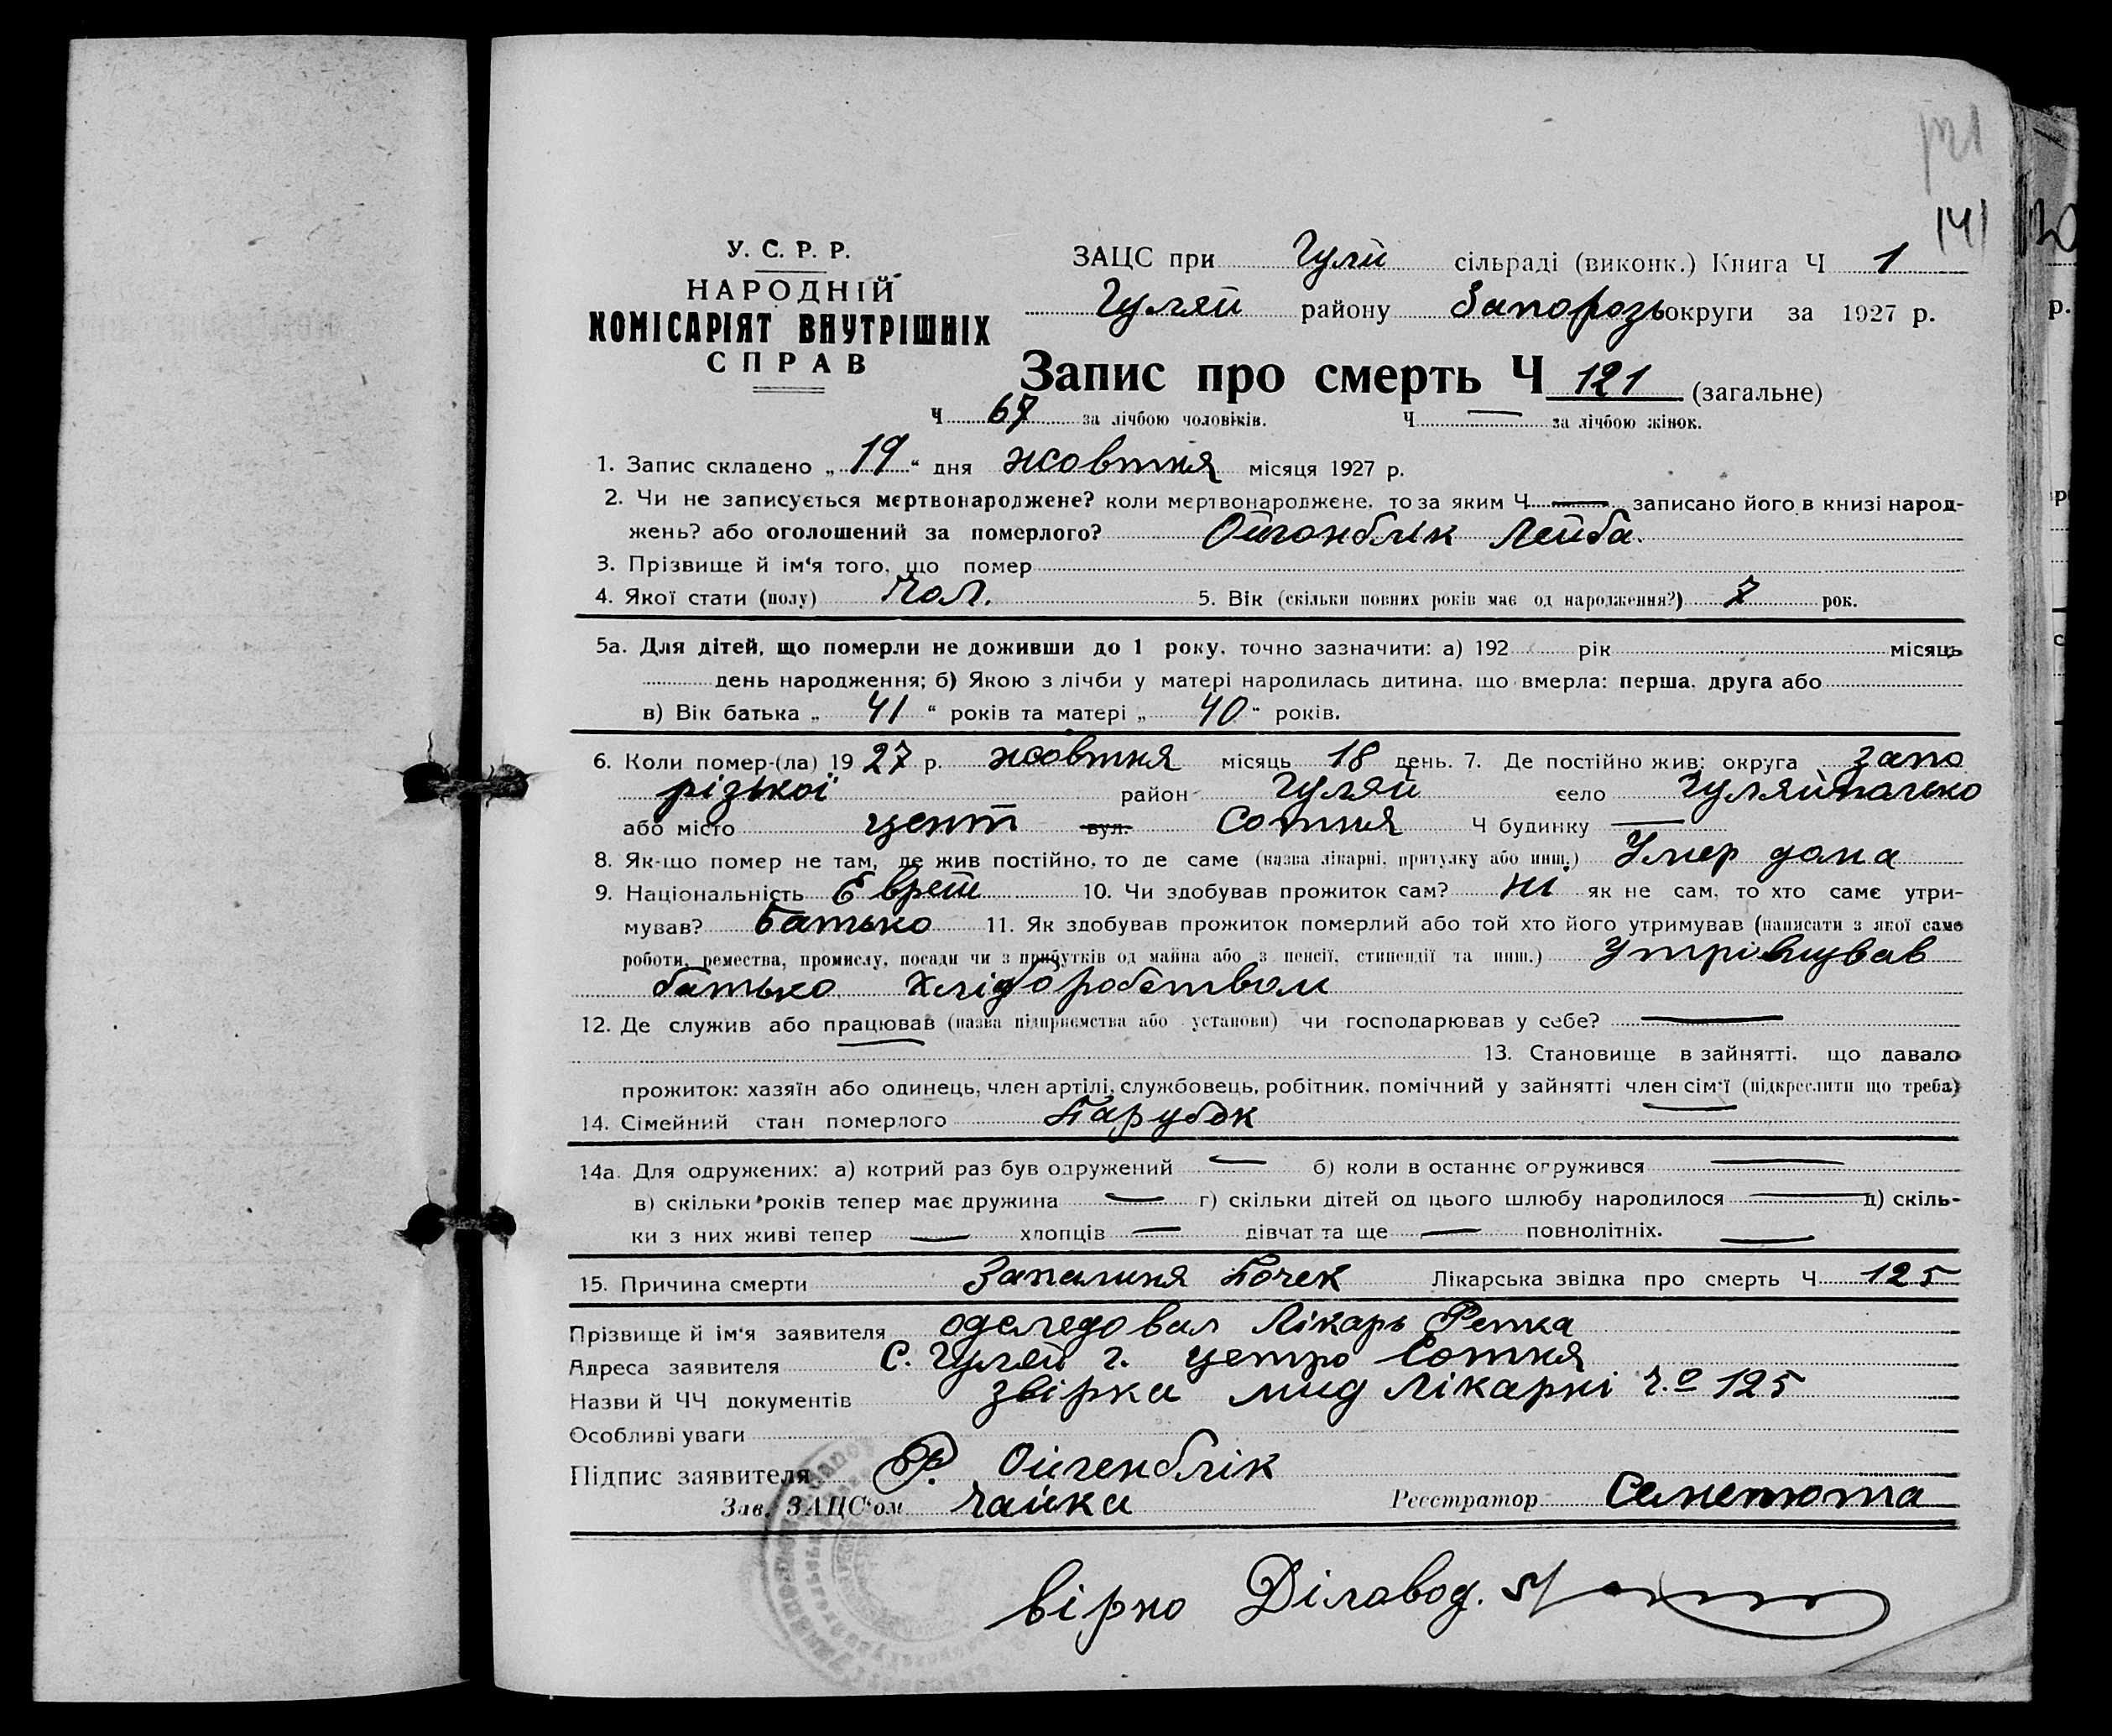 141
У. С. Р. Р.
НАРОДНІЙ
КОМІСАРІЯТ ВНУТРІШНІХ
СПРАВ
ЗАЦС при Гуляй сільраді (виконк.) Книга Ч 1
Гуляй району Запорозь округи за 1927 р.
Запис про смерть Ч 121 (загальне)
Ч 67 за лічбою чоловіків. Ч — за лічбою жінок.
1. Запис складено „ 19 “ дня жовтня місяця 1927 р.
2. Чи не записується мертвонароджене? коли мертвонароджене, то за яким Ч — записано його в книзі народ-
жень? або оголошений за померлого? Ойгенблік Лейба.
3. Прізвище й ім‘я того, що помер
4. Якої стати (полу) Чол. 5. Вік (скільки повних років має од народження?) 7 рок.
5а. Для дітей, що померли не доживши до 1 року, точно зазначити: а) 192 рік місяць
день народження; б) Якою з лічби у матері народилась дитина, що вмерла: перша, друга або
в) Вік батька „ 41 “ років та матері „ 40 “ років.
6. Коли помер-(ла) 19 27 р. жовтня місяць 18 день. 7. Де постійно жив: округа запо
різької район Гуляй село Гуляйполько
або місто цент вул. Сотня Ч будинку —
8. Як-що помер не там, де жив постійно, то де саме (назва лікарні, притулку або инш.) Умер дома
9. Національність Єврей 10. Чи здобував прожиток сам? Ні як не сам, то хто саме утри-
мував? Батько 11. Як здобував прожиток померлий або той хто його утримував (написати з якої саме
роботи, ремества, промислу, посади чи з прибутків од майна або з пенсії, стипендії та инш.) Утрімував
батько хліборобством
12. Де служив або працював (назва підприємства або установи) чи господарював у себе? —
13. Становище в зайнятті, що давало
прожиток: хазяїн або одинець, член артілі, службовець, робітник, помічний у зайнятті член сім‘ї (підкреслити що треба)
14. Сімейний стан померлого Парубок
14а. Для одружених: а) котрий раз був одружений — б) коли в останнє одружився —
в) скільки років тепер має дружина — г) скільки дітей од цього шлюбу народилося — д) скіль-
ки з них живі тепер — хлопців — дівчат та ще — повнолітніх. —
15. Причина смерти Запалиня Почек Лікарська звідка про смерть Ч 125
Прізвище й ім‘я заявителя одследовал Лікарь Репка
Адреса заявителя С. Гуляй г. цетро Сотня
Назви й ЧЧ документів звірка Лікарні 125
Особливі уваги
Підпис заявителя Р. Ойгенблік
Зав. ЗАЦС‘ом Чайка Реєстратор Семетюта
вірно Діловод.